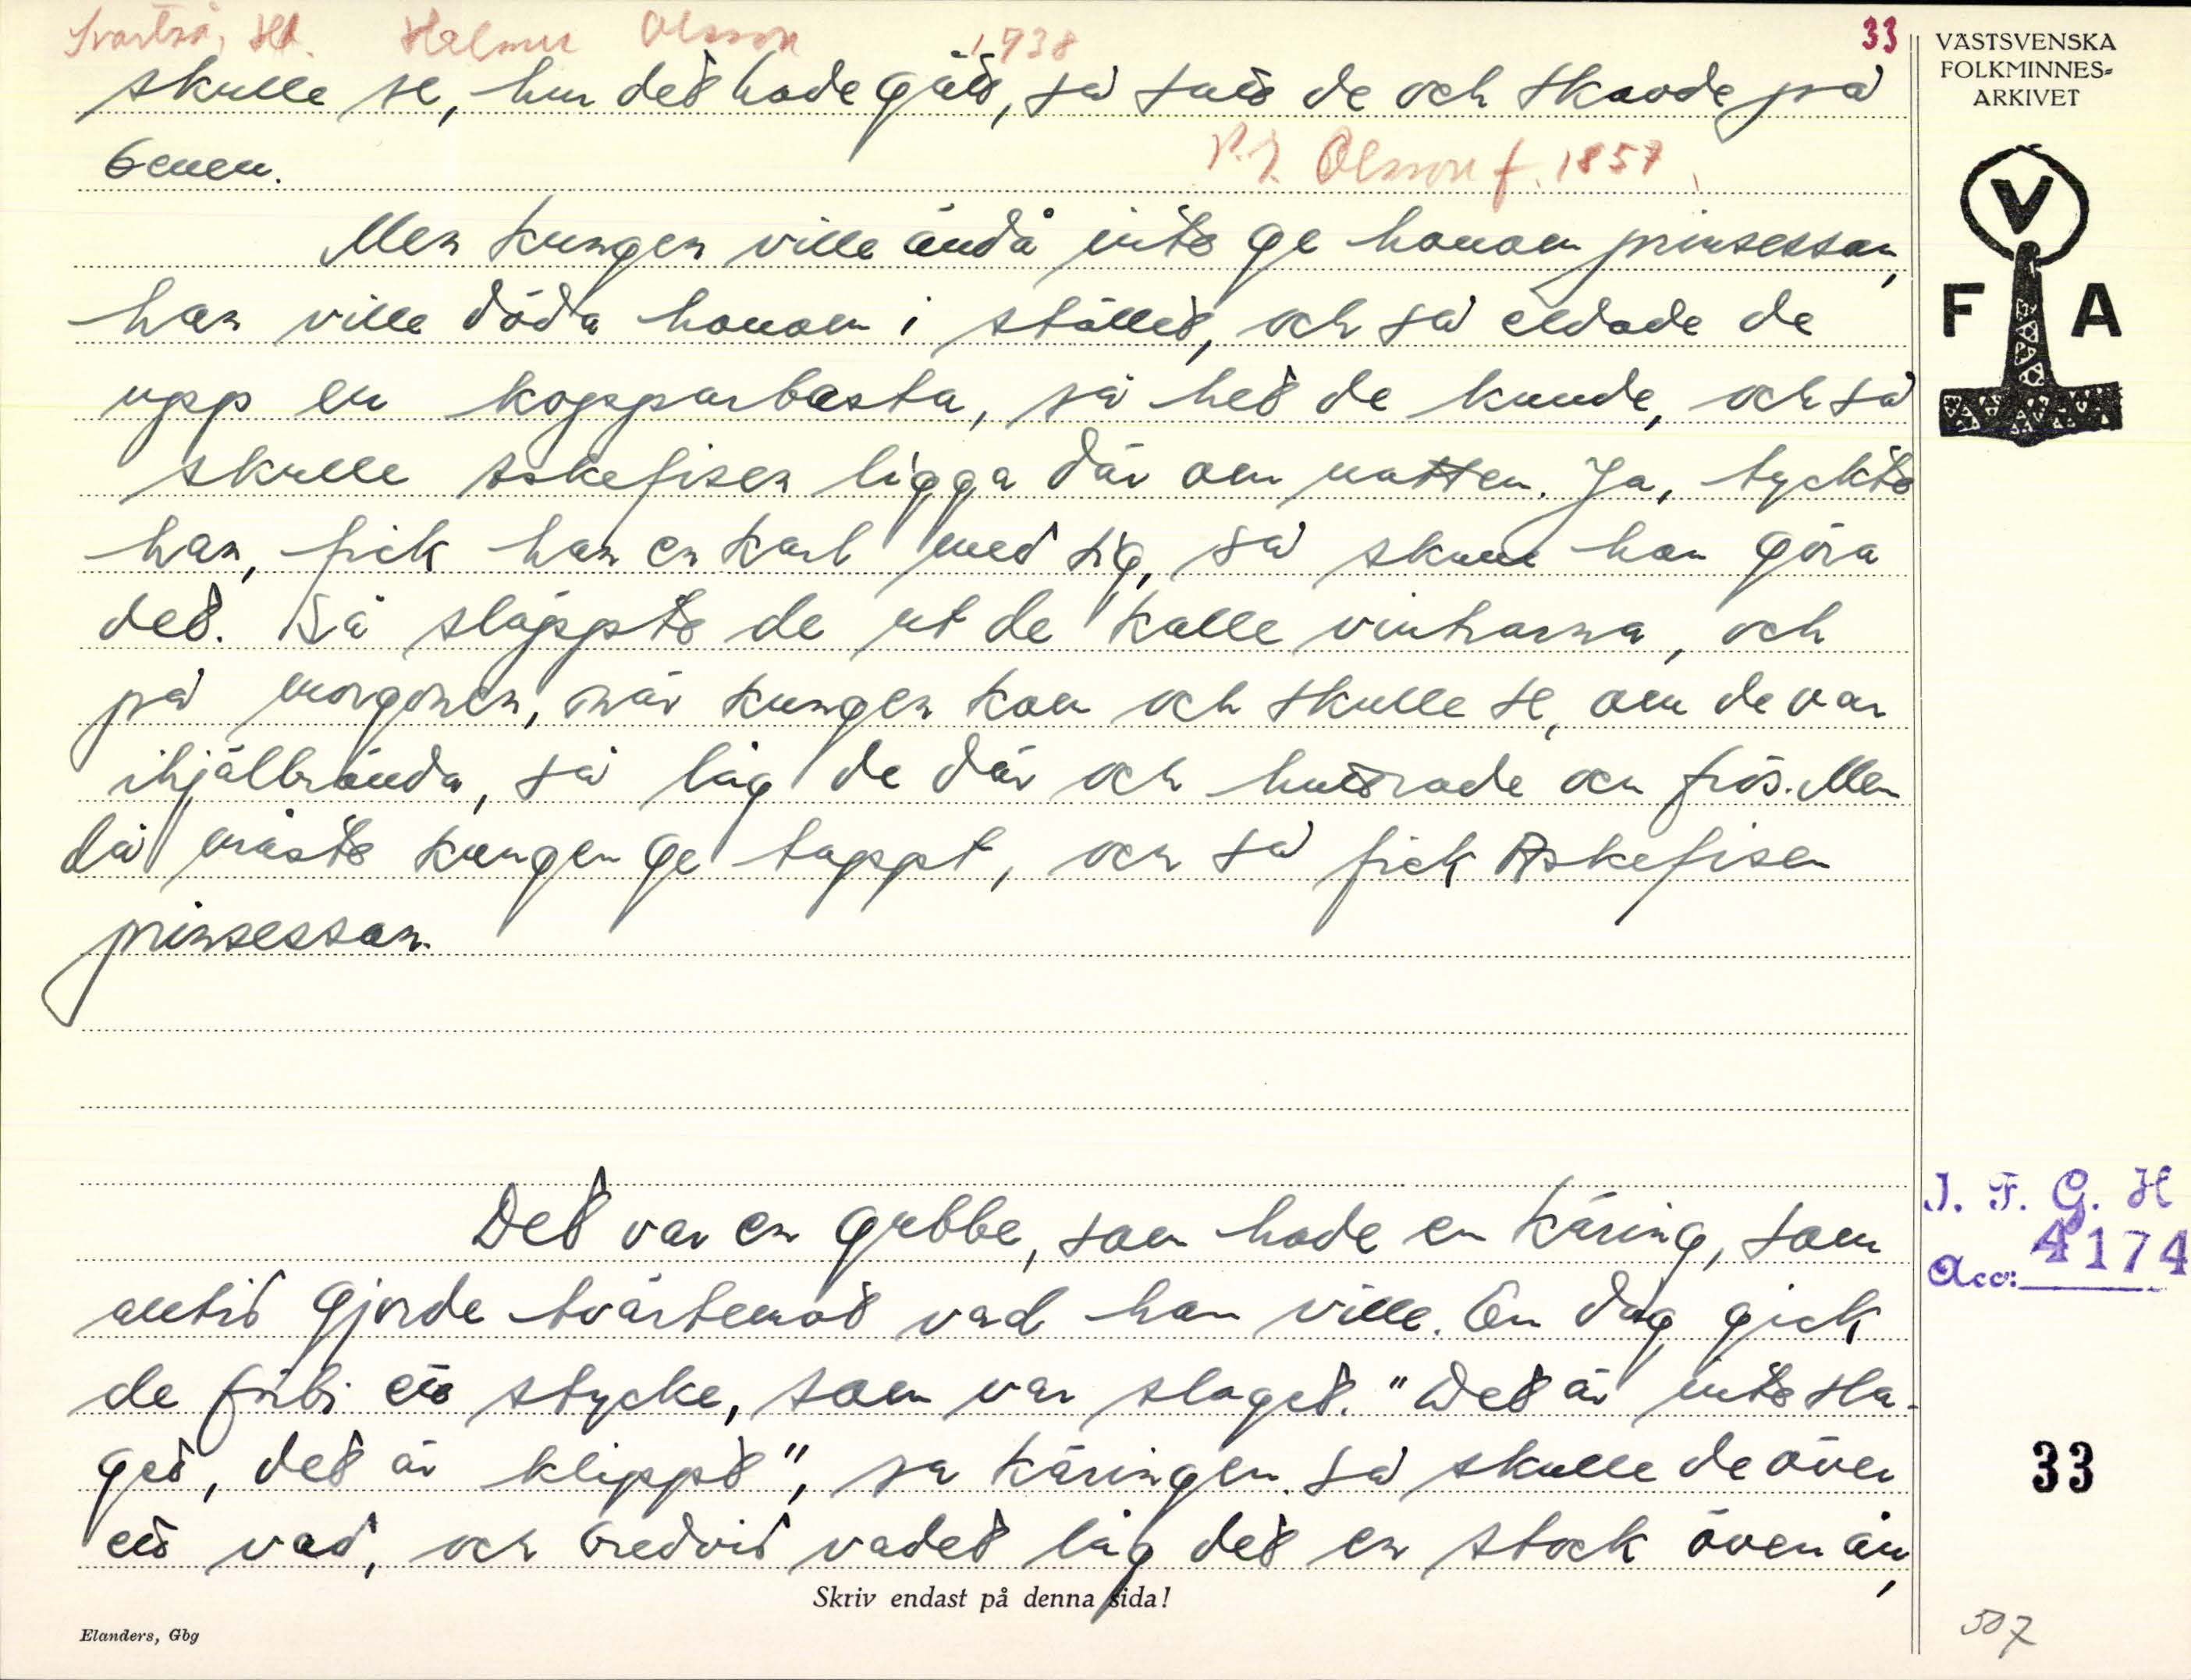 Svartrå, Hd. Helmer Olsson 1938 33
skulle se, hur det hade gått, så satt de och skavde på
benen.
P.J. Olsson f. 1857.
Men kungen ville ändå inte ge honom prinsessan,
han ville döda honom i stället, och så eldade de
upp en kopparbasta, så het de kunde, och så
skulle Askefisen ligga där om natten. Ja, tyckte
han, fick han en karl med sig, så skulle han göra
det. Så släppte de ut de kalle vintrarna, och
på morgonen, när kungen kom och skulle se, om de var
ihjälbrända, så låg de där och huttrade och frös. Men
då måste kungen ge tappt, och så fick Askefisen
prinsessan.
Det var en gubbe, som hade en käring, som
alltid gjorde tvärtemot vad han ville. En dag gick
de förbi ett stycke, som var slaget. "Det är inte sla-
get, det är klippt", sa käringen. Så skulle de över
ett vad, och bredvid vadet låg det en stock över ån,
Skriv endast på denna sida!
Elanders, Gbg
VÄSTSVENSKA
FOLKMINNES-
ARKIVET
V
F A
I. F. G. H
Acc: 4174
33
507